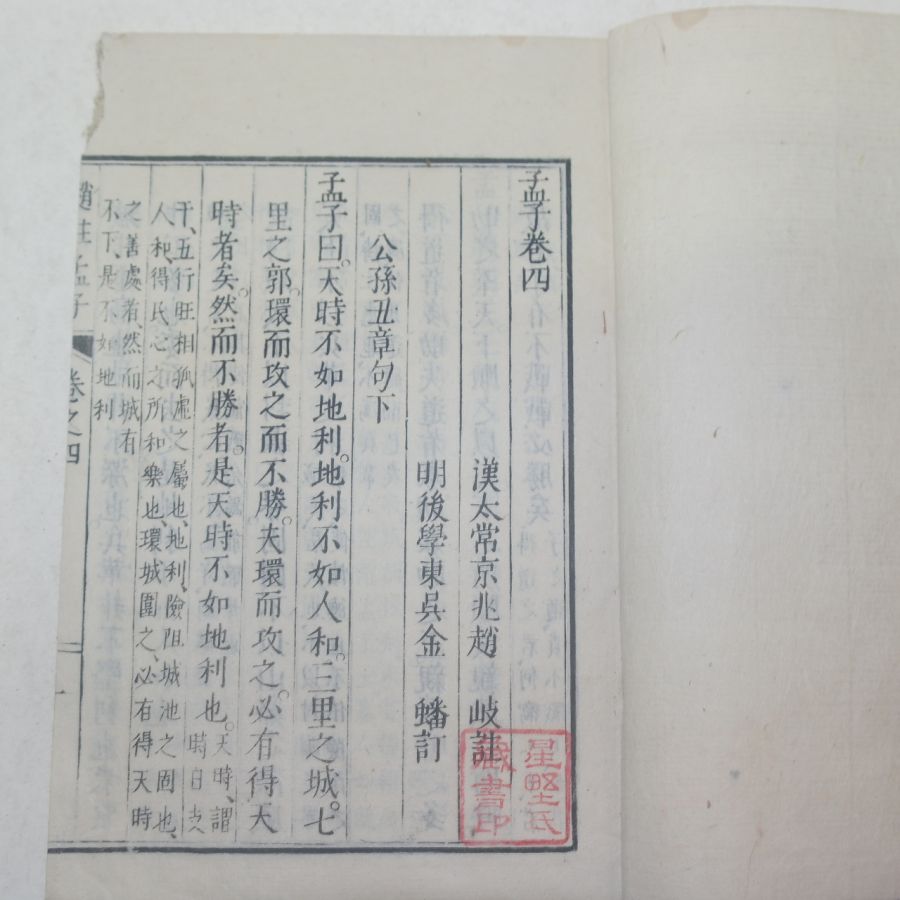 孟子卷四
漢太常京兆趙 岐註
明後學東吳金 蟠訂
公孫丑章句下
孟子曰。天時不如地利。地利不如人和。三里之城。七
里之郭。環而攻之而不勝。夫環而攻之。必有得天
時者矣。然而不勝者。是天時不如地利也。天時、謂
時日支
干、五行旺相孤虛之屬也、地利、險阻城池之固也、
人和、得民心之所和樂也、環城圍之、必有得天時
之善處者、然而城有
不下、是不如地利
趙註孟子 卷之四 一
星野氏
藏書印